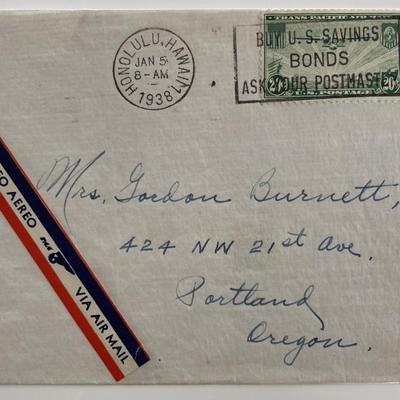 HONOLULU, HAWAII
JAN 5
8-AM
1938
BUY U.S. SAVINGS
BONDS
ASK YOUR POSTMASTER
TRANS-PACIFIC AIR MAIL
20¢ 20¢
U.S. POSTAGE
AEREO
VIA AIR MAIL
Mrs. Gordon Burnett,
424 NW 21st Ave.
Portland
Oregon.